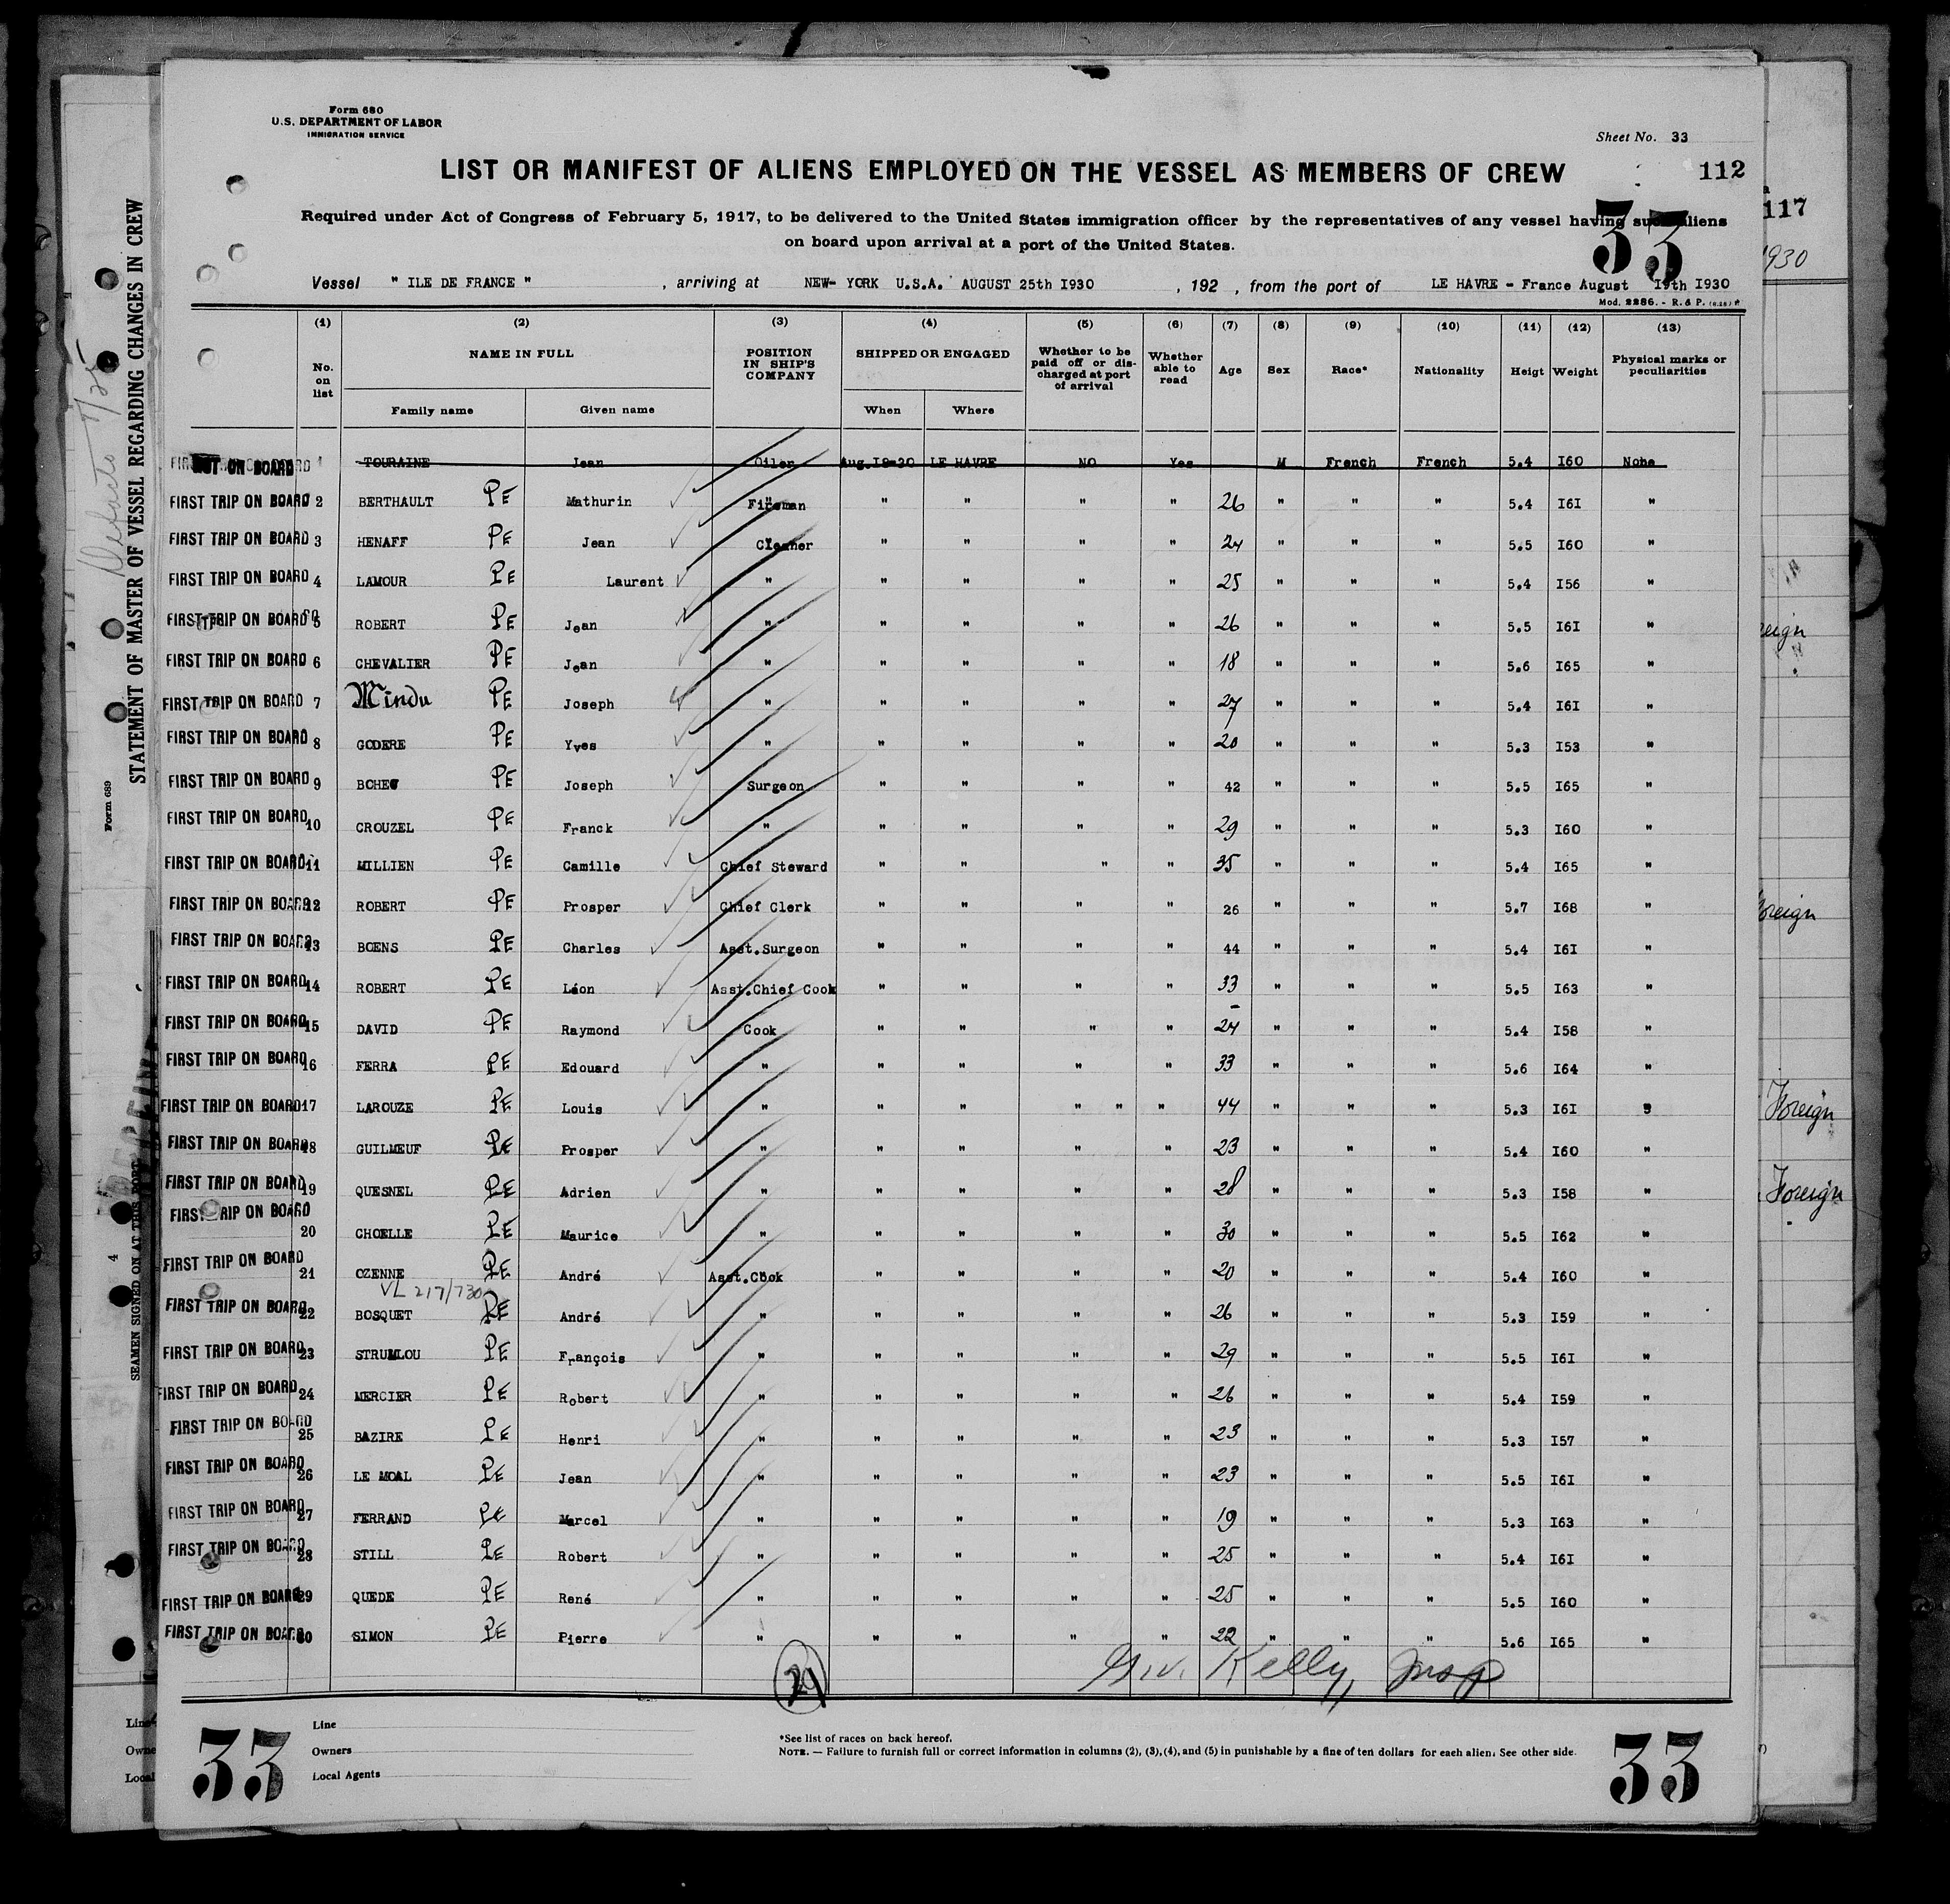 Form 680
U.S. DEPARTMENT OF LABOR
IMMIGRATION SERVICE
Sheet No. 33
LIST OR MANIFEST OF ALIENS EMPLOYED ON THE VESSEL AS MEMBERS OF CREW
112
Required under Act of Congress of February 5, 1917, to be delivered to the United States immigration officer by the representatives of any vessel having such aliens
on board upon arrival at a port of the United States.
33
Vessel " ILE DE FRANCE " , arriving at NEW- YORK U.S.A. AUGUST 25th I930 , 192 , from the port of LE HAVRE - France August 19th I930
Mod. 2286. - R. & P. (6.28) ft
(1) (2) (3) (4) (5) (6) (7) (8) (9) (10) (11) (12) (13)
No. on list NAME IN FULL POSITION IN SHIP'S COMPANY SHIPPED OR ENGAGED Whether to be paid off or discharged at port of arrival Whether able to read Age Sex Race* Nationality Heigt Weight Physical marks or peculiarities
Family name Given name When Where
NOT ON BOARD 1 TOURAINE Jean Oiler Aug.I9-30 LE HAVRE NO Yes M French French 5.4 I60 None
FIRST TRIP ON BOARD 2 BERTHAULT PE Mathurin Fireman " " " " 26 " " " 5.4 I6I "
FIRST TRIP ON BOARD 3 HENAFF PE Jean Cleaner " " " " 24 " " " 5.5 I60 "
FIRST TRIP ON BOARD 4 LAMOUR PE Laurent " " " " " 25 " " " 5.4 I56 "
FIRST TRIP ON BOARD 5 ROBERT PE Jean " " " " " 26 " " " 5.5 I6I "
FIRST TRIP ON BOARD 6 CHEVALIER PE Jean " " " " " 18 " " " 5.6 I65 "
FIRST TRIP ON BOARD 7 Mindu PE Joseph " " " " " 27 " " " 5.4 I6I "
FIRST TRIP ON BOARD 8 GODERE PE Yves " " " " " 20 " " " 5.3 I53 "
FIRST TRIP ON BOARD 9 PE Joseph Surgeon " " " " 42 " " " 5.5 I65 "
FIRST TRIP ON BOARD 10 CROUZEL PE Franck " " " " " 29 " " " 5.3 I60 "
FIRST TRIP ON BOARD 11 MILLIEN PE Camille Chief Steward " " " " 35 " " " 5.4 I65 "
FIRST TRIP ON BOARD 12 ROBERT PE Prosper Chief Clerk " " " " 26 " " " 5.7 I68 "
FIRST TRIP ON BOARD 13 BOENS PE Charles Asst.Surgeon " " " " 44 " " " 5.4 I6I "
FIRST TRIP ON BOARD 14 ROBERT PE Léon Asst.Chief Cook " " " " 33 " " " 5.5 I63 "
FIRST TRIP ON BOARD 15 DAVID PE Raymond Cook " " " " 24 " " " 5.4 I58 "
FIRST TRIP ON BOARD 16 FERRA PE Edouard " " " " " 33 " " " 5.6 I64 "
FIRST TRIP ON BOARD 17 LAROUZE PE Louis " " " " " " 44 " " " 5.3 I6I "
FIRST TRIP ON BOARD 18 GUILMEUF PE Prosper " " " " " 23 " " " 5.4 I60 "
FIRST TRIP ON BOARD 19 QUESNEL PE Adrien " " " " " 28 " " " 5.3 I58 "
FIRST TRIP ON BOARD 20 CHOELLE PE Maurice " " " " " 30 " " " 5.5 I62 "
FIRST TRIP ON BOARD 21 OZENNE PE André Asst.Cook " " " " 20 " " " 5.4 I60 "
VL 217/730
FIRST TRIP ON BOARD 22 BOSQUET PE André " " " " " 26 " " " 5.3 I59 "
FIRST TRIP ON BOARD 23 STRUMLOU PE François " " " " " 29 " " " 5.5 I6I "
FIRST TRIP ON BOARD 24 MERCIER PE Robert " " " " " 26 " " " 5.4 I59 "
FIRST TRIP ON BOARD 25 BAZIRE PE Henri " " " " " 23 " " " 5.3 I57 "
FIRST TRIP ON BOARD 26 LE MOAL PE Jean " " " " " 23 " " " 5.5 I6I "
FIRST TRIP ON BOARD 27 FERRAND PE Marcel " " " " " 19 " " " 5.3 I63 "
FIRST TRIP ON BOARD 28 STILL PE Robert " " " " " 25 " " " 5.4 I6I "
FIRST TRIP ON BOARD 29 QUEDE PE René " " " " " 25 " " " 5.5 I60 "
FIRST TRIP ON BOARD 30 SIMON PE Pierre " " " " " 22 " " " 5.6 I65 "
Kelly, Insp
33
Line
Owners
Local Agents
*See list of races on back hereof.
NOTE. — Failure to furnish full or correct information in columns (2), (3), (4), and (5) in punishable by a fine of ten dollars for each alien. See other side.
33
STATEMENT OF MASTER OF VESSEL REGARDING CHANGES IN CREW
Form 689
SEAMEN SIGNED ON AT THIS PORT
4
Line
Owne
Local
117
1930
reign
Foreign
Foreign
Foreign